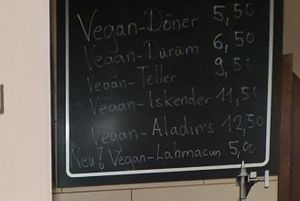 Vegan-Döner 5,50
Vegan-Dürüm 6,50
Vegan-Teller 9,50
Vegan-Iskender 11,50
Vegan-Aladin's 12,50
Neu! Vegan-Lahmacun 5,00